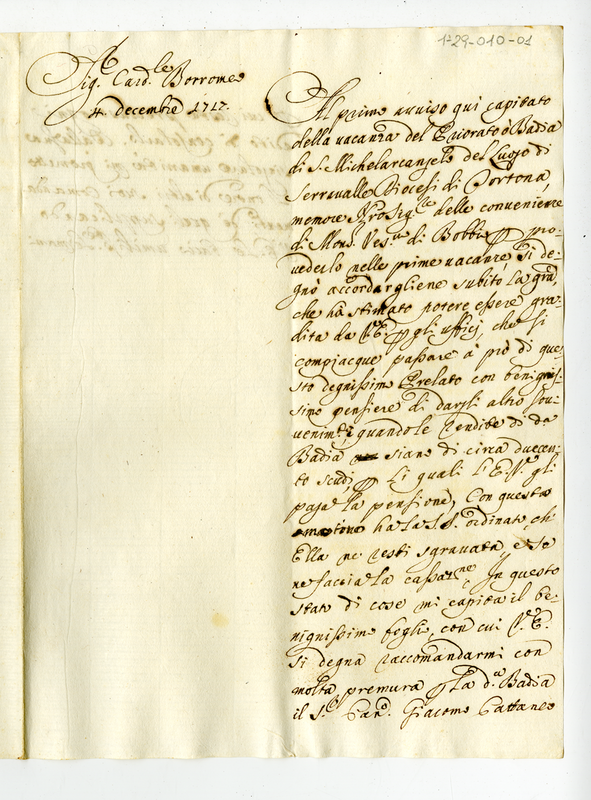 1-29-010-01
Sig.r Card.le Borromeo
4. decembre 1717.
Al primo avviso qui capitato
della vacanza del Priorato ò Badia
di S. Michelarcangelo del Luogo di
Serravalle Diocesi di Tortona,
memore N'ro Sig.re delle convenienze
di Mons. Ves.o di Bobbio, pro-
vederlo nelle prime vacanze, si de-
gnò accordargliene subito la gra,
che hà stimato potere essere gra-
dita da V.E. gli ufficj, che si
compiacque passare à prò di que-
sto degnissimo Prelato con benignis-
simo pensiere di darsli altro sou-
venim.to; quando le rendite di da
Badia siano di circa duecen-
to scudi, li quali l'E.V. gli
paga la pensione, Con questa
ha la S.S. ordinato, ch'
Ella ne resti sgravata, e se
ne faccia la cassaz.ne. In questo
stato di cose mi capita il be-
nignissimo foglio, con cui V.E.
si degna raccomandarmi con
molta premura la d.a Badia
il S.r Can.co Giacomo Cattaneo